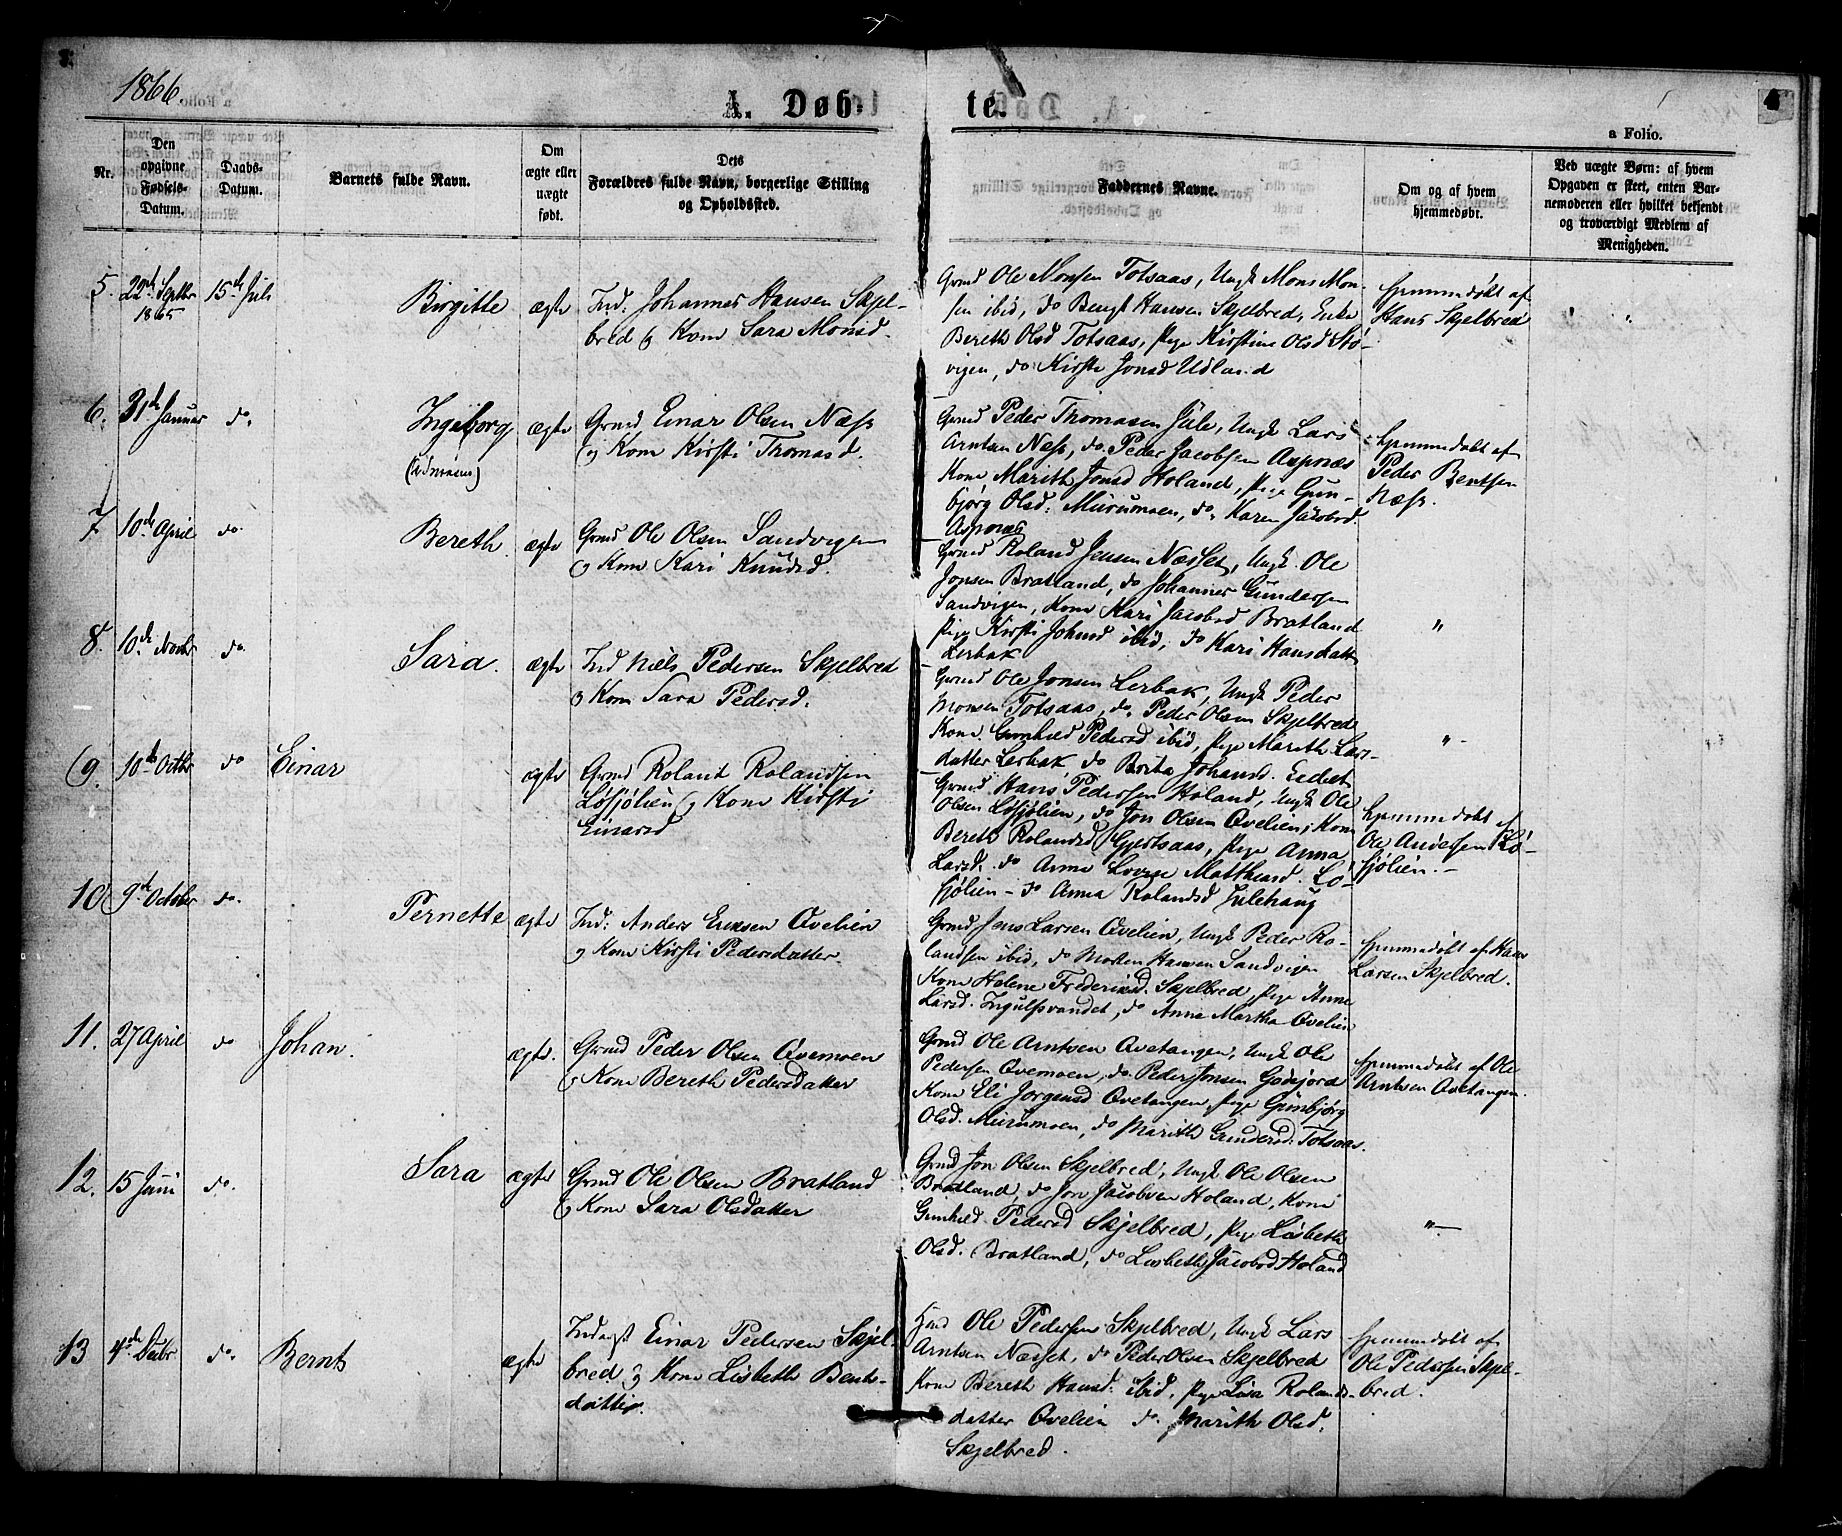 1866.
A. Døbte.
4
a Folio.
Nr.
Den opgivne Fødsels-Datum.
Daabs-Datum.
Barnets fulde Navn.
Om ægte eller uægte født.
Dets Forældres fulde Navn, borgerlige Stilling og Opholdssted.
Faddernes Navne.
Om og af hvem hjemmedøbt.
Ved uægte Børn: af hvem Opgaven er skeet, enten Barnemoderen eller hvilket bekjendt og troværdigt Medlem af Menigheden.
5. 22de Septbr 1865 15de Juli Birgitte ægte
Ind. Johannes Hansen Skjel-
bred og Kone Sara Monsd.
Grmd Ole Monsen Totsaas, Ungk Mons Mon-
sen ibid, do Bengt Hansen Skjelbred, Enke
Bereth Olsd Totsaas, Pige Kirstine Olsd Stø-
vigen, do Kirsti Jonsd Udland
Hjemmedøbt af
Hans Skjelbred
6. 31de Januar do. Ingeborg ægte
Grmd Einar Olsen Næss
og Kone Kirsti Thomasd.
Grmd Peder Thomasen Jule, Ungk Lars
Arntsen Næss, do. Peder Jacobsen Aspnæs
Kone Marith Jonsd Holand, Pige Gun-
bjørg Olsd. Murumoen, do. Karen Jacobsd.
Aspnæs
Hjemmedøbt af
Peder Bentsen
Næss.
7 10de April do. Bereth. ægte
Grmd Ole Olsen Sandvigen
og Kone Kari Knudsd.
Grmd Roland Jensen Næsset, Ungk. Ole
Jonsen Bratland, do Johannes Gundersen
Sandvigen, Kone Kari Jacobsd Bratland
Pige Kirsti Johnsd ibid, do Kari Hansdatter
Lerbak
"
8. 10de Novbr do. Sara. ægte
Ind Niels Pedersen Skjelbred
og Kone Sara Pedersd.
Grmd Ole Jonsen Lerbak, Ungk Peder
Monsen Totsaas, do. Peder Olsen Skjelbred
Kone. Gunhild Pedersd ibid, Pige Marith Lars-
datter Lerbak do Brita Johansd.
"
9. 10de Octbr do Einar ægte
Grmd Roland Rolandsen
Løsjølien og Kone Kirsti
Einarsd
Grmd. Hans Pedersen Holand, Ungk Ole
Olsen Løsjølien, do Jon Olsen Qvelien, Kone
Bereth Rolandsd Gjertsaas, Pige Anna
Larsd. do Anne Lovise Matthiasd. Lø-
sjølien - do Anna Rolandsd Julehaug
Hjemmedøbt af
Ole Andersen Lø-
sjølien.-
10 9de October do. Pernette ægte
Ind: Anders Eriksen Qvelien
og Kone Kirsti Pedersdatter.
Grmd Jens Larsen Qvelien, Ungk Peder Ro-
landsen ibid, do Morten Hansen Sandvigen
Kone Helene Frederiksd. Skjelbred, Pige Anne
Larsd. Ingulfsvandet, do Anne Martha Qvelien
Hjemmedøbt af Hans
Larsen Skjelbred.
11. 27 April do Johan. ægte.
Grmd Peder Olsen Qvemoen
og Kone Bereth Pedersdatter
Grmd Ole Arntsen Qvetangen, Ungk Ole
Pedersen Qvemoen, do. Peder Jonsen Godejord
Kone Eli Jørgensd Qvetangen, Pige Gunbjørg
Olsd. Murumoen, do Marith Gundersd. Totsaas.
Hjemmedøbt af Ole
Arntsen Qvetangen.
12. 15 Juni do. Sara ægte
Grmd Ole Olsen Bratland
og Kone Sara Olsdatter
Grmd Jon Olsen Skjelbred, Ungk Ole Olsen
Bratland, do Jon Jacobsen Holand, Kone
Gunhild. Pedersd Skjelbred, Pige Lisbeth
Olsd. Bratland, do Lisbeth Jacobsd Holand
"
13 4de Decbr do. Bernt ægte
Inderst Einar Pedersen Skjel-
bred og Kone Lisbeth Bents-
datter.
Ole Pedersen Skjelbred, Ungk Lars
Arntsen Næsset, do Peder Olsen Skjelbred
Kone Bereth Hansd. ibid, Pige Lisa Rolands-
datter Qvelien do. Marith Olsd.
Skjelbred.
Hjemmedøbt af
Ole Pedersen Skjel-
bred.